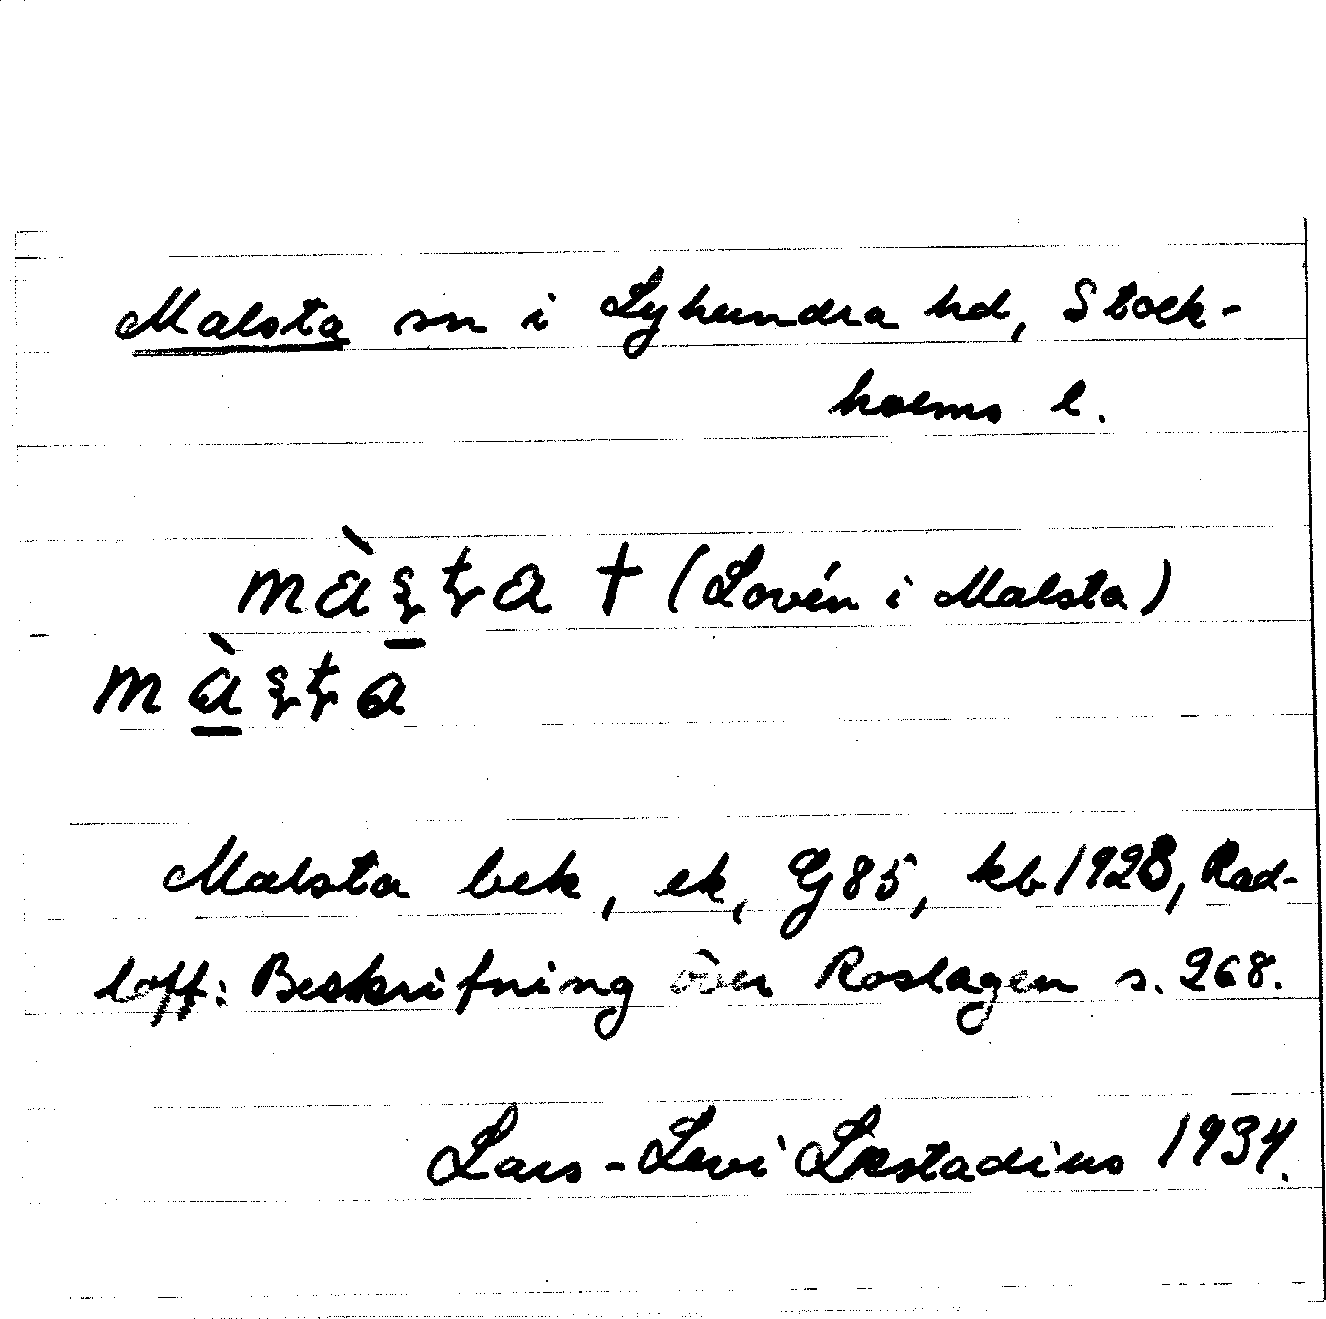 Malsta sn i Lyhundra hd, Stock-
holms l.
màʂʈa † (Lovén i Malsta)
màʂʈa
Malsta bek, ek, G85, kb 1928, Rad-
loff: Beskrifning över Roslagen s. 268.
Lars-Levi Læstadius 1934.